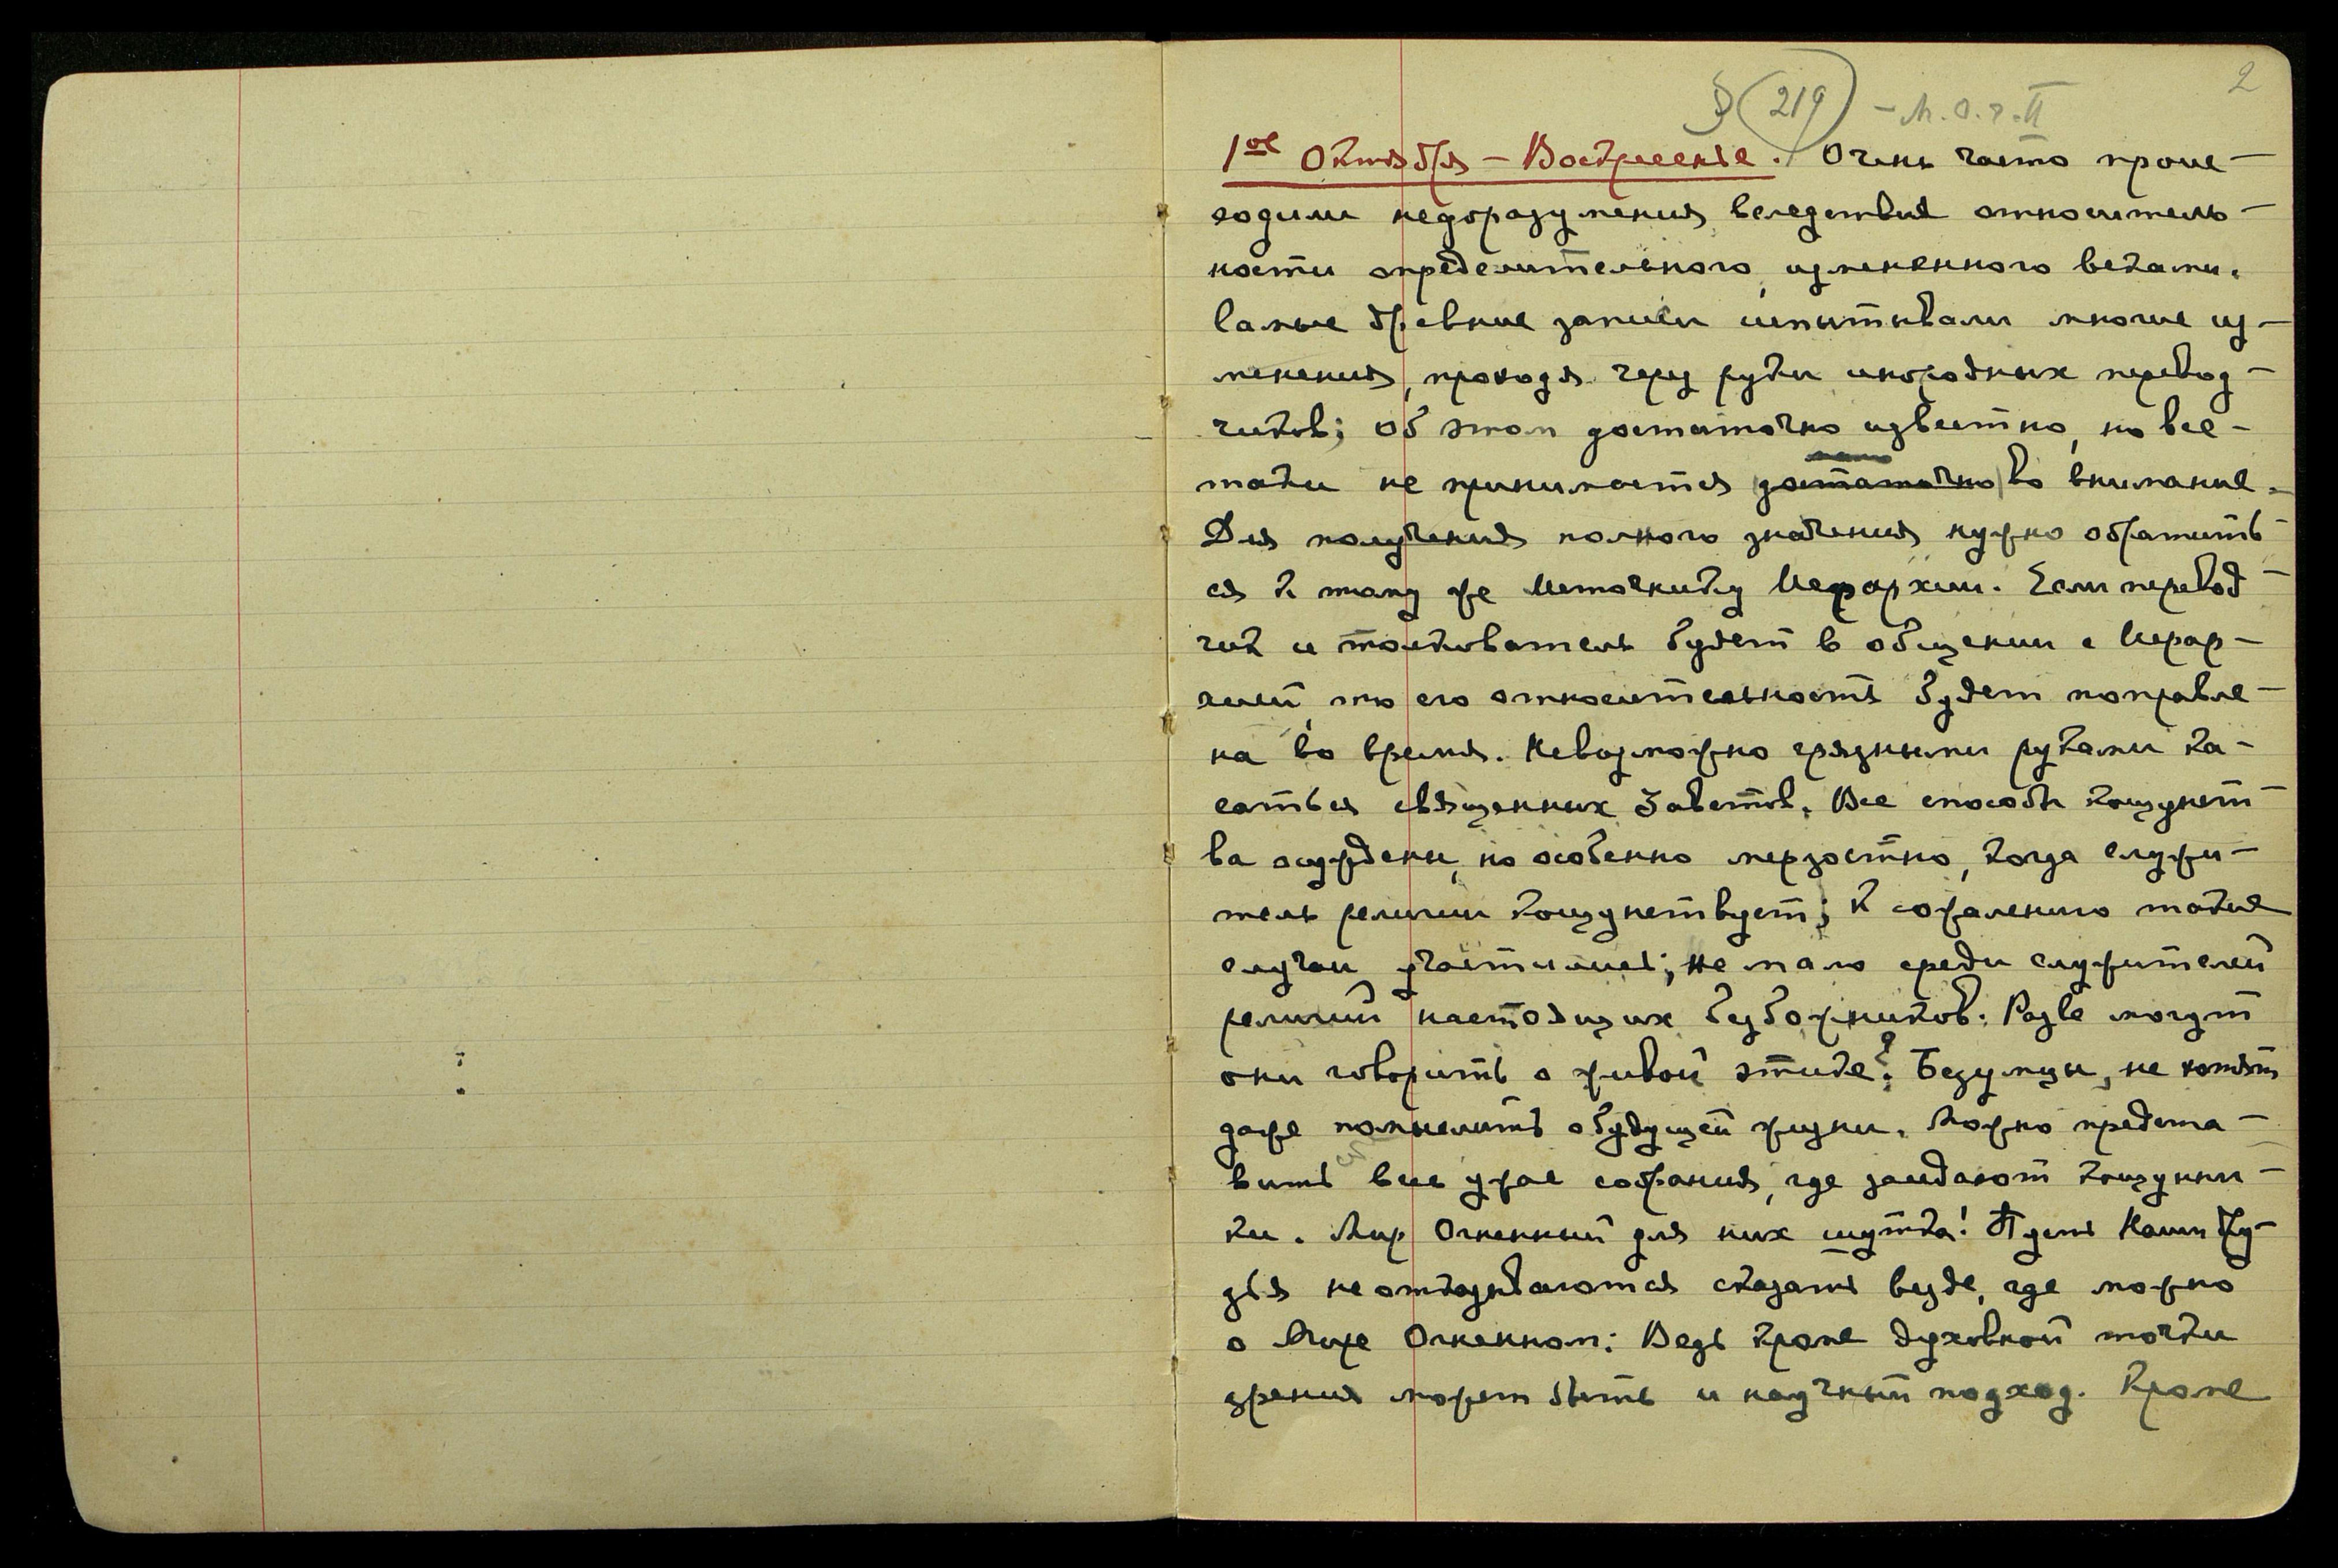 2
§ (219) – М.О.ч.II
1ое Октября – Воскресенье. Очень часто проис-
ходили недоразумения вследствие относитель-
ности определительного, измененного веками.
Самые древние записи испытывали многие из-
менения, проходя через руки инородных перевод-
чиков; об этом достаточно известно, но все-
таки не принимается достаточно во внимание.
Для получения полного значения нужно обратить-
ся к тому же Источнику Иерархии. Если перевод-
чик и толкователь будет в общении с Иерар-
хией, то его относительность будет поправле-
на во время. Невозможно грязными руками ка-
саться священных Заветов. Все способы кощунст-
ва осуждены, но особенно мерзостно, когда служи-
тель религии кощунствует; К сожалению такие
случаи участились; не мало среди служителей
религий настоящих безбожников. Разве могут
они говорить о живой этике? Безумцы, не хотят
даже помыслить о будущей жизни. Можно предста-
вить весь ужас собрания, где заседают кощунни-
ки. Мир Огненный для них шутка! Пусть Наши дру-
зья не отказываются сказать везде, где можно
о Мире Огненном: Ведь кроме духовной точки
зрения может быть и научный подход. Кроме